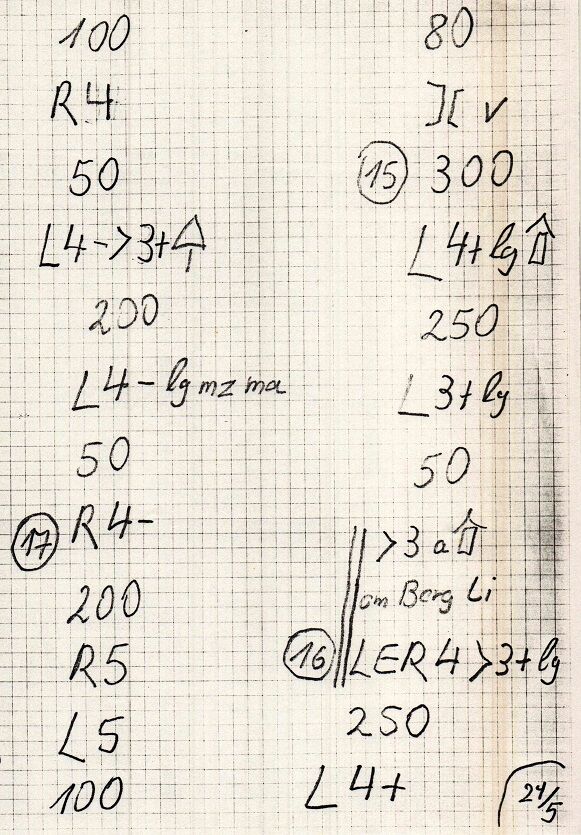 100
R4
50
L4->3+
200
L4- lg mz ma
50
17 R4-
200
R5
L5
100
80
][ v
15 300
L4+ lg
250
L3+ lg
50
>3 a
am Berg Li
16 LER4>3+lg
250
L4+
24/5